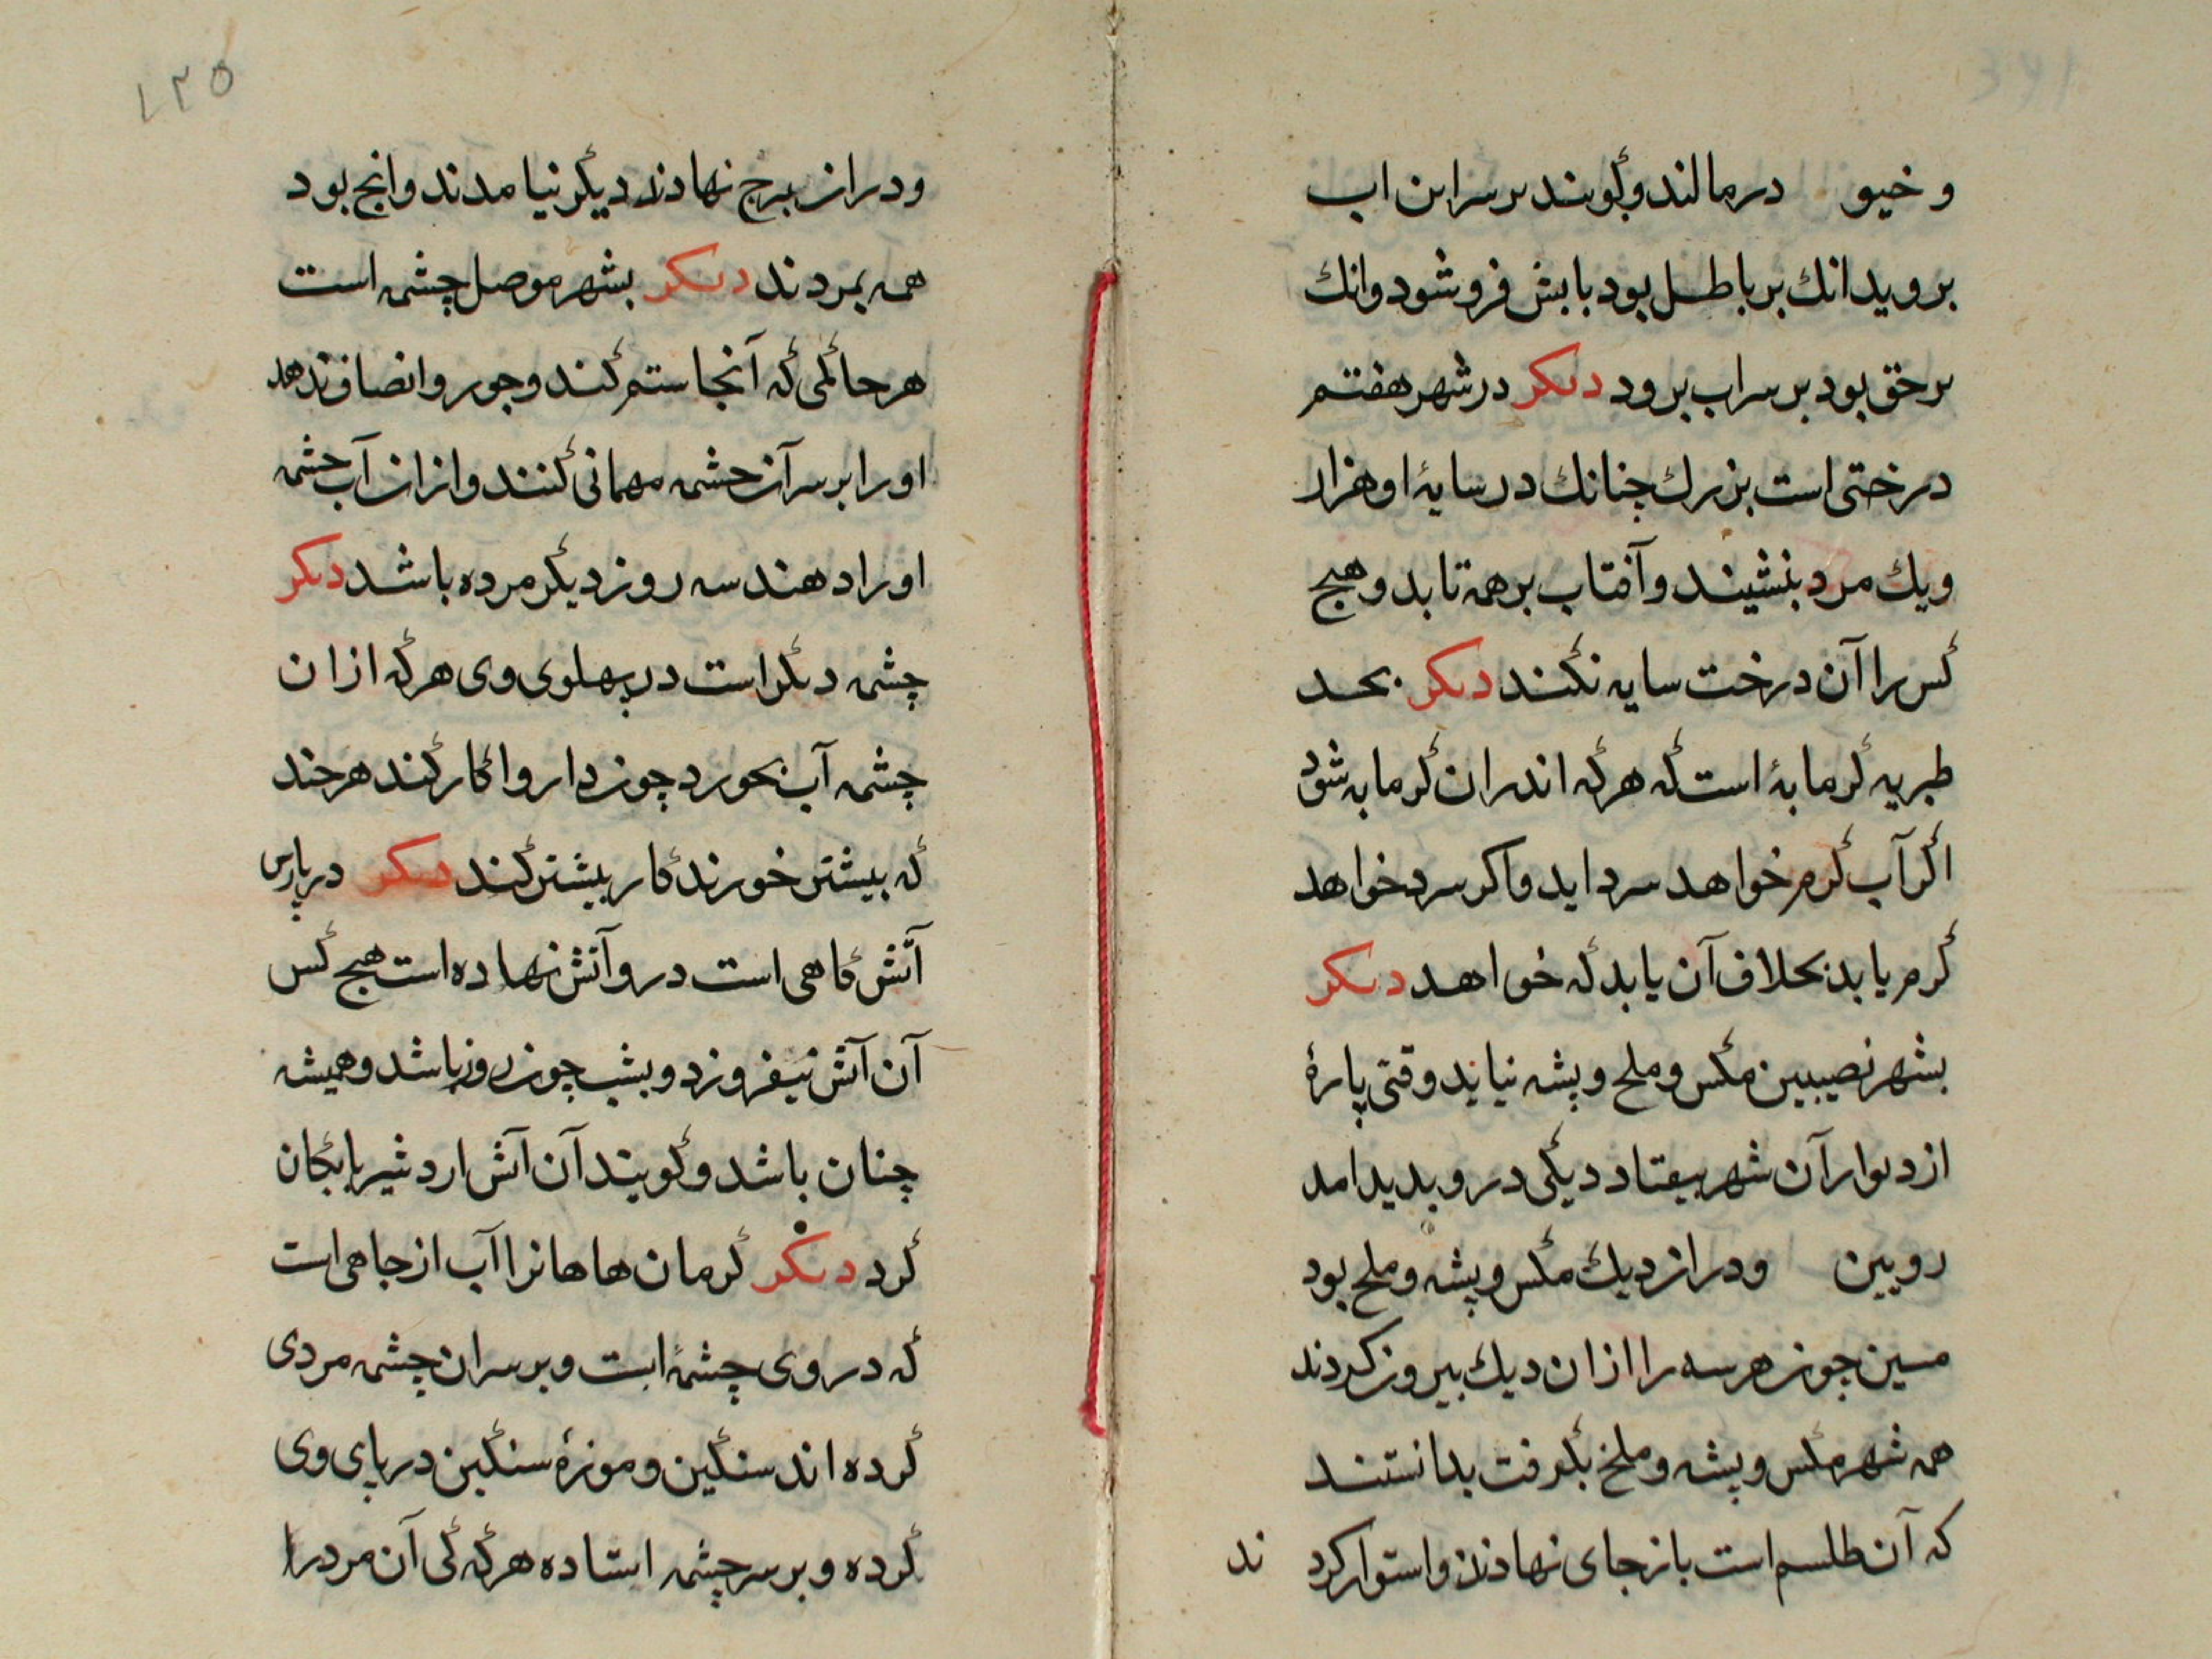 و خیو درمالند وگویند بر سر این اب
بروید انك بر باطل بود بابش فروشود وانك
بر حق بود بر سر اب برود دیکر در شهر هفتم
درختی است بزرك چنانك در سایهٔ او هزار
ویك مرد بنشیند وآفتاب بر همه تابد وهیچ
کس را آن درخت سایه نکند دیکر بحد
طبریه گرمابهٔ است که هرکه اندران گرمابه شود
اگر آب گرم خواهد سرد اید واکر سرد خواهد
گرم یابد بخلاف آن یابد که خواهد دیکر
بشهر نصیبین مگس وملخ وپشه نیاید وقتی پارهٔ
از دیوار آن شهر بیفتاد دیگی درو بدید امد
رویین ودران دیك مگس وپشه وملخ بود
مسین چون هر سه را ازان دیك بیرون کردند
همه شهر مگس وپشه وملخ بگرفت بدانستند
که آن طلسم است باز جای نهادند واستوار کرد ند
۱۲۵
ودران برج نهادند دیگر نیامدند وانچ بود
همه بمردند دیکر بشهر موصل چشمه است
هر حاکمی که آنجا ستم کند وجور وانصاف ندهد
اورا بر سر آن چشمه مهمانی کنند وازان آب چشمه
اورا دهند سه روز دیگر مرده باشد دیکر
چشمه دیگر است در پهلوی وی هرکه ازان
چشمه آب بخورد چون داروا کار کند هرچند
که بیشتر خورند کار بیشتر کند دیکر در پارس
آتش گاهی است درو آتش نهاده است هیچ کس
آن آتش نیفروزد وبشب چون روز باشد وهمیشه
چنان باشد وگویند آن آتش اردشیر بابکان
کرد دیکر کرمان هاهانرا آب از جاهی است
که در وی چشمهٔ است وبر سر ان چشمه مردی
کرده اند سنگین وموزهٔ سنگین در پای وی
کرده وبر سر چشمه استاده هرکه کی آن مرد را